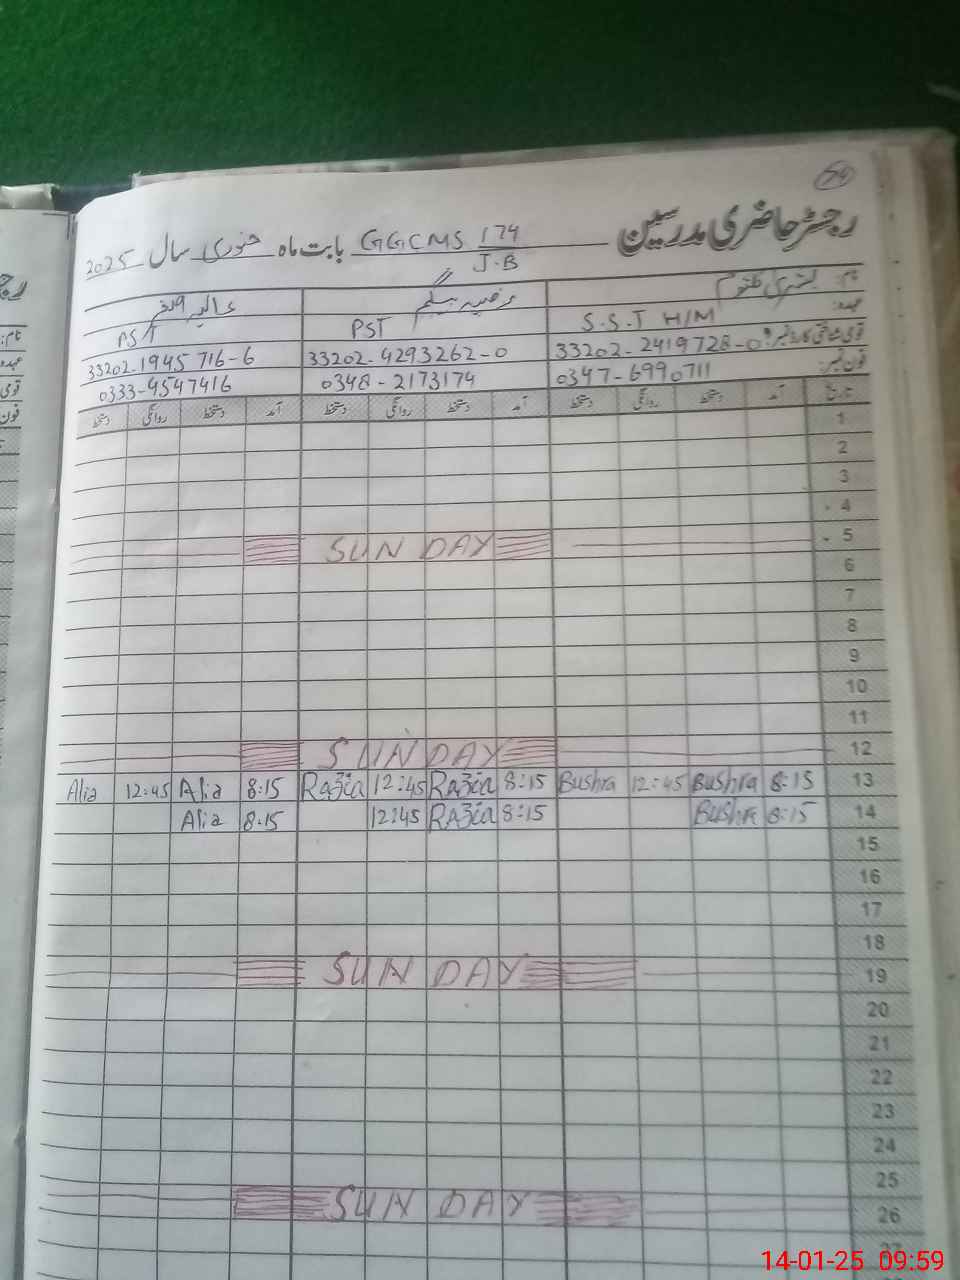 54
رجسٹر حاضری مدرسین GGCMS 174/J.B بابت ماہ جنوری سال 2025
نام: بشریٰ کلثوم رضیہ بیگم عالیہ
عہدہ: S.S.T H/M PST PST
قومی شناختی کارڈ نمبر: 33202-2419728-0 33202-4293262-0 33202-1945716-6
فون نمبر: 0347-6990711 0348-2173174 0333-4547416
تاریخ آمد دستخط روانگی دستخط آمد دستخط روانگی دستخط آمد دستخط روانگی دستخط
1
2
3
4
5 SUNDAY
6
7
8
9
10
11
12 SUNDAY
13 8:15 Bushra 12:45 Bushra 8:15 Razia 12:45 Razia 8:15 Alia 12:45 Alia
14 8:15 Bushra 8:15 Razia 12:45 8:15 Alia
15
16
17
18
19 SUNDAY
20
21
22
23
24
25
26 SUNDAY
27
نام:
عہدہ
قومی
فون
14-01-25 09:59